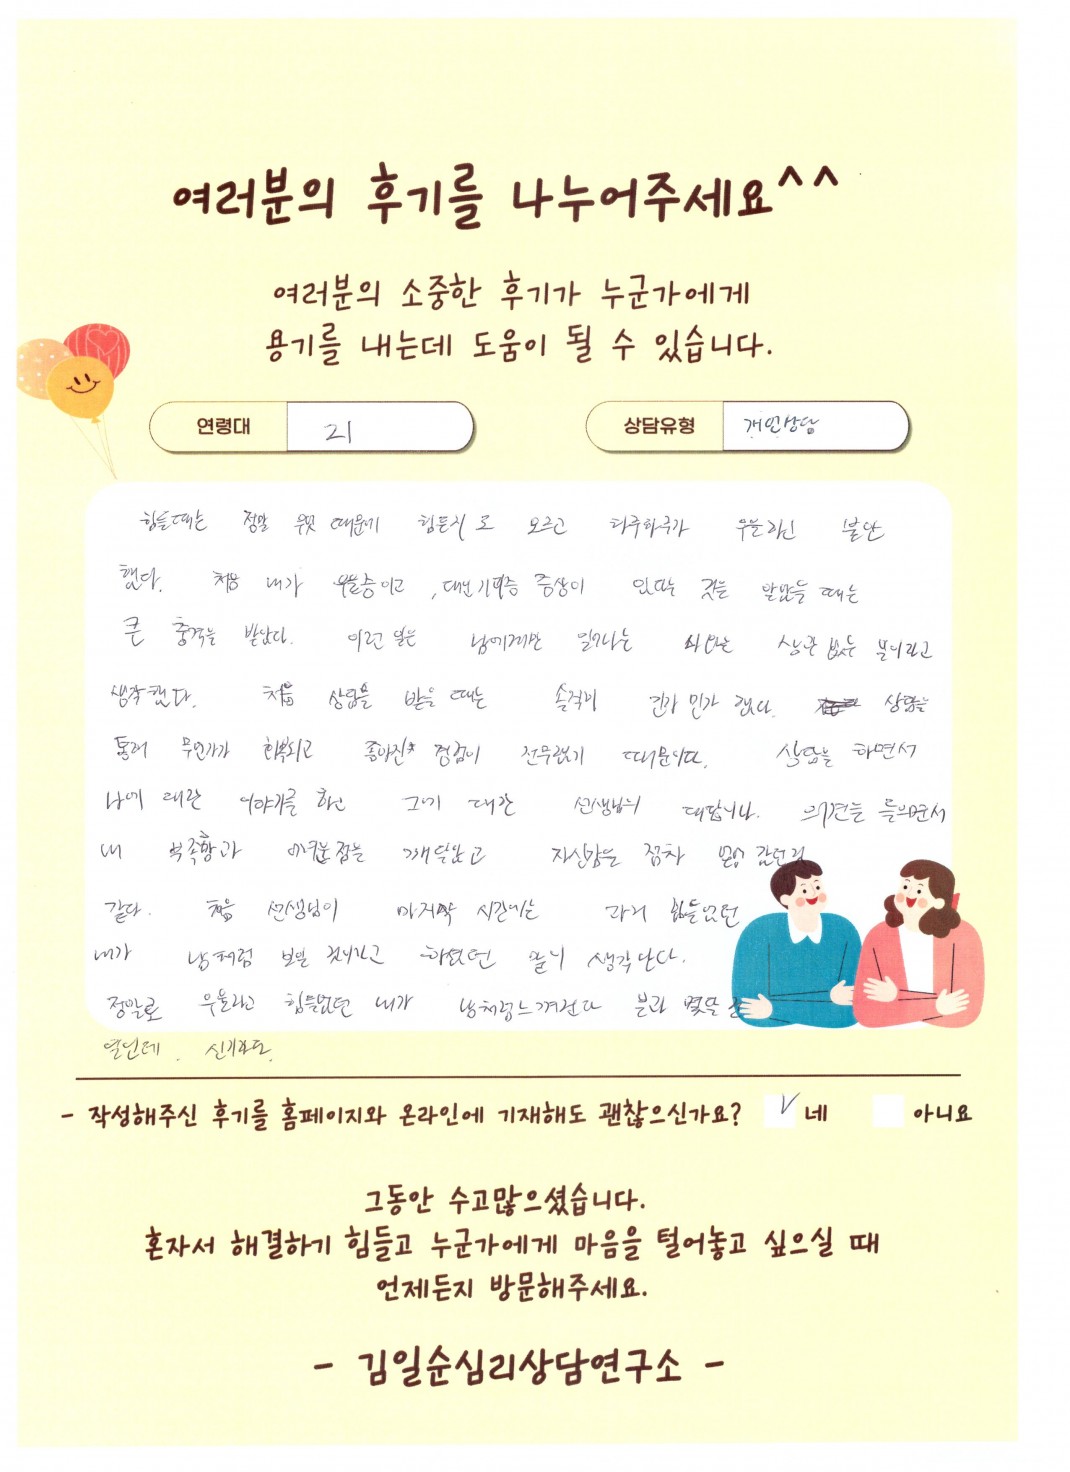 여러분의 후기를 나누어주세요^^
여러분의 소중한 후기가 누군가에게
용기를 내는데 도움이 될 수 있습니다.
연령대 21 상담유형 개인상담
힘들때는 정말 무엇 때문에 힘든지 모르고 하루하루가 우울하고 불안
했다. 처음 내가 우울증이고, 대인기피증 증상이 있다는 것을 알았을 때는
큰 충격을 받았다. 이런 일은 남에게만 일어나는 상관 없는 일이라고
생각했다. 처음 상담을 받을 때는 솔직히 긴가 민가 했다. 상담을
통해 무언가가 회복되고 좋아진 경험이 전무했기 때문이다. 상담을 하면서
나에 대한 이야기를 하고 그에 대한 선생님의 대답이나 의견을 들으면서
내 부족함과 어려운 점을 깨달았고 자신감을 점차
같다. 처음 선생님이 마지막 시간에는 과거 힘들었던
내가 남처럼 보일 것이라고 하셨던 말이 생각난다.
정말로 우울하고 힘들었던 내가 남처럼 느껴진다 불과 몇달 전
일인데. 신기하다.
- 작성해주신 후기를 홈페이지와 온라인에 기재해도 괜찮으신가요? V 네 아니요
그동안 수고많으셨습니다.
혼자서 해결하기 힘들고 누군가에게 마음을 털어놓고 싶으실 때
언제든지 방문해주세요.
- 김일순심리상담연구소 -